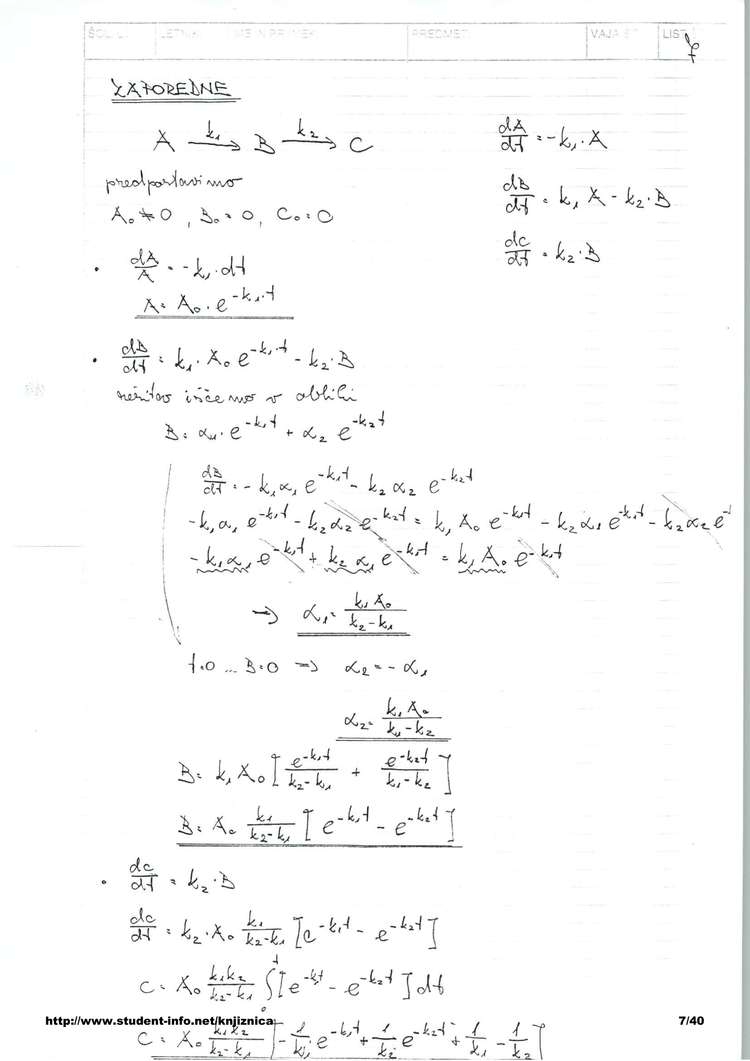 ŠOLSKO LETNIK IME IN PRIIMEK PREDMET VAJA ŠT. LIST
7
ZAPOREDNE
A —k₁→ B —k₂→ C
dA/dt = -k₁·A
predpostavimo
dB/dt = k₁ A - k₂·B
A₀ ≠ 0, B₀ = 0, C₀ = 0
dC/dt = k₂·B
• dA/A = -k₁·dt
A = A₀·e^(-k₁·t)
• dB/dt = k₁·A₀ e^(-k₁·t) - k₂·B
rešitev iščemo v obliki
B = α₁·e^(-k₁t) + α₂ e^(-k₂t)
dB/dt = -k₁α₁ e^(-k₁t) - k₂ α₂ e^(-k₂t)
-k₁α₁ e^(-k₁t) - k₂α₂ e^(-k₂t) = k₁ A₀ e^(-k₁t) - k₂α₁ e^(-k₁t) - k₂α₂ e^-
-k₁α₁ e^(-k₁t) + k₂ α₁ e^(-k₁t) = k₁ A₀ e^(-k₁t)
⇒ α₁ = k₁A₀/(k₂-k₁)
t=0 ... B=0 ⇒ α₂ = -α₁
α₂ = k₁A₀/(k₁-k₂)
B = k₁A₀ [e^(-k₁t)/(k₂-k₁) + e^(-k₂t)/(k₁-k₂)]
B = A₀ k₁/(k₂-k₁) [e^(-k₁t) - e^(-k₂t)]
• dC/dt = k₂·B
dC/dt = k₂·A₀ k₁/(k₂-k₁) [e^(-k₁t) - e^(-k₂t)]
C = A₀ k₁k₂/(k₂-k₁) ∫₀ᵗ [e^(-k₁t) - e^(-k₂t)] dt
http://www.student-info.net/knjiznica 7/40
C = A₀ k₁k₂/(k₂-k₁) [-1/k₁ e^(-k₁t) + 1/k₂ e^(-k₂t) + 1/k₁ - 1/k₂]